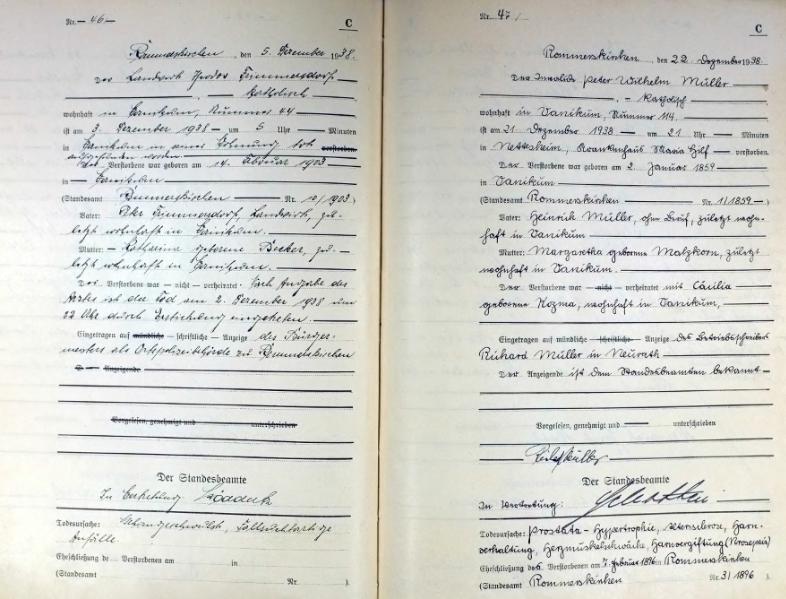 Nr. 46
C
Rommerskirchen, den 5. Dezember 1938.
Der Landwirt
katholisch
wohnhaft in Nummer 44
ist am 3. Dezember 1938 um 5 Uhr Minuten
in in einer Wohnung tot verstorben.
aufgefunden worden.
Der Verstorbene war geboren am 14. Februar 1903
in
(Standesamt Rommerskirchen Nr. 10/1903)
Vater: Peter Landwirt, zu-
letzt wohnhaft in
Mutter: Katharina geborene Becker, zu-
letzt wohnhaft in
Der Verstorbene war — nicht — verheiratet. Nach Angabe des
Arztes ist der Tod am 2. Dezember 1938 um
22 Uhr durch Erstickung eingetreten.
Eingetragen auf mündliche — schriftliche — Anzeige des Bürger-
meisters als Ortspolizeibehörde zu Rommerskirchen
D Anzeigende
Vorgelesen, genehmigt und unterschrieben
Der Standesbeamte
In Vertretung
Todesursache:
Anfälle.
Eheschließung de Verstorbenen am in
(Standesamt Nr. ).
Nr. 47
C
Rommerskirchen, den 22. Dezember 1938.
Der Invalide Peter Wilhelm Müller
- katholisch
wohnhaft in Vanikum, Nummer 114.
ist am 21. Dezember 1938 um 21 Uhr Minuten
in Nettesheim, Krankenhaus Maria Hilf verstorben.
Der Verstorbene war geboren am 2. Januar 1859
in Vanikum
(Standesamt Rommerskirchen Nr. 1/1859 )
Vater: Heinrich Müller, ohne Beruf, zuletzt wohn-
haft in Vanikum
Mutter: Margaretha geborene Malzkorn, zuletzt
wohnhaft in Vanikum.
Der Verstorbene war — nicht — verheiratet mit Cäcilia
geborene Kozma, wohnhaft in Vanikum,
Eingetragen auf mündliche — schriftliche — Anzeige des Betriebsschreibers
Richard Müller in Neurath.
Der Anzeigende ist dem Standesbeamten bekannt
Vorgelesen, genehmigt und unterschrieben
Der Standesbeamte
In Vertretung:
Todesursache: Prostata-Hypertrophie, Harn-
verhaltung, Herzmuskelschwäche, Harnvergiftung
Eheschließung des Verstorbenen am 7. Februar 1896 in Rommerskirchen
(Standesamt Rommerskirchen Nr. 3/1896 ).